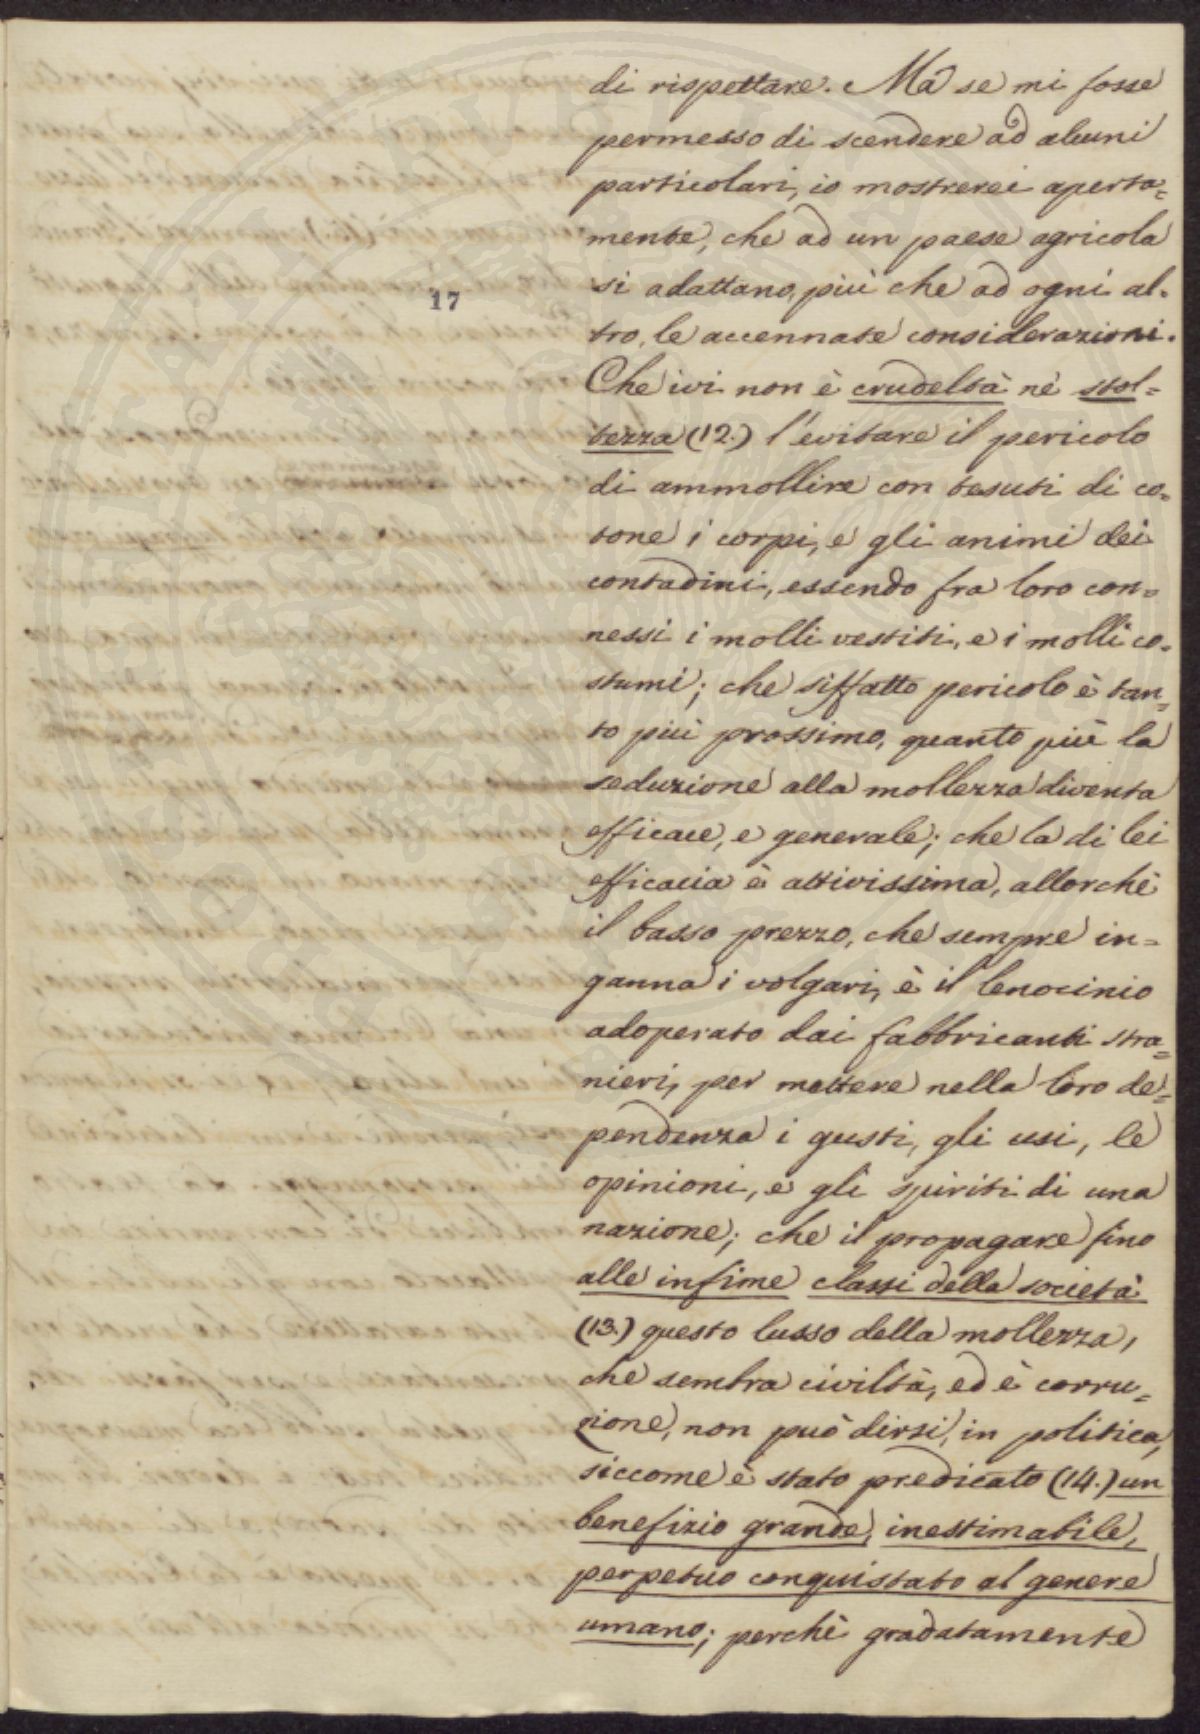 17
di rispettare. Ma se mi fosse
permesso di scendere ad alcuni
particolari, io mostrerei aperta=
mente, che ad un paese agricola
si adattano, più che ad ogni al=
tro, le accennate considerazioni.
Che ivi non è crudeltà nè stol=
tezza (12.) l'evitare il pericolo
di ammollire con tesuti di co=
tone i corpi, e gli animi dei
contadini, essendo fra loro con=
nessi i molli vestiti, e i molli co=
stumi; che siffatto pericolo è tan=
to più prossimo, quanto più la
seduzione alla mollezza diventa
efficace, e generale; che la di lei
efficacia è attivissima, allorchè
il basso prezzo, che sempre in=
ganna i volgari, è il lenocinio
adoperato dai fabbricanti stra=
nieri, per mettere nella loro de=
pendenza i gusti, gli usi, le
opinioni, e gli spiriti di una
nazione; che il propagare fino
alle infime classi della società
(13.) questo lusso della mollezza,
che sembra civiltà, ed è corru=
zione, non può dirsi, in politica,
siccome è stato predicato (14.) un
benefizio grande, inestimabile,
perpetuo conquistato al genere
umano; perchè gradatamente